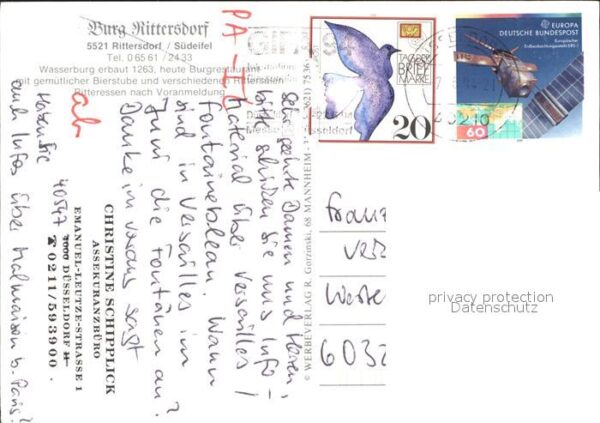 Burg Rittersdorf
5521 Rittersdorf / Südeifel
Tel. 0 65 61 / 24 33
Wasserburg erbaut 1263, heute Burgrestaurant
mit gemütlicher Bierstube und verschiedenen Rittersälen
Ritteressen nach Voranmeldung
PA-
ab
Sehr geehrte Damen und Herren,
bitte schicken Sie uns Info-
material über Versailles /
Fontainebleau. Wann
sind in Versailles im
Juni die Fontänen an?
Danke im voraus sagt
CHRISTINE SCHIPPLICK
ASSEKURANZBÜRO
EMANUEL-LEUTZE-STRASSE 1
40547 4000 DÜSSELDORF 11
☎ 0211/593900.
Haben Sie
auch Infos über Malmaison b. Paris?
© WERBEVERLAG R. Gorzinski, 68 MANNHEIM
TAG DER
BRIEF
MARKE
20
EUROPA
DEUTSCHE BUNDESPOST
Europäischer
Erdbeobachtungssatellit ERS-1
60
40210
Franz
Wester
603
privacy protection
Datenschutz